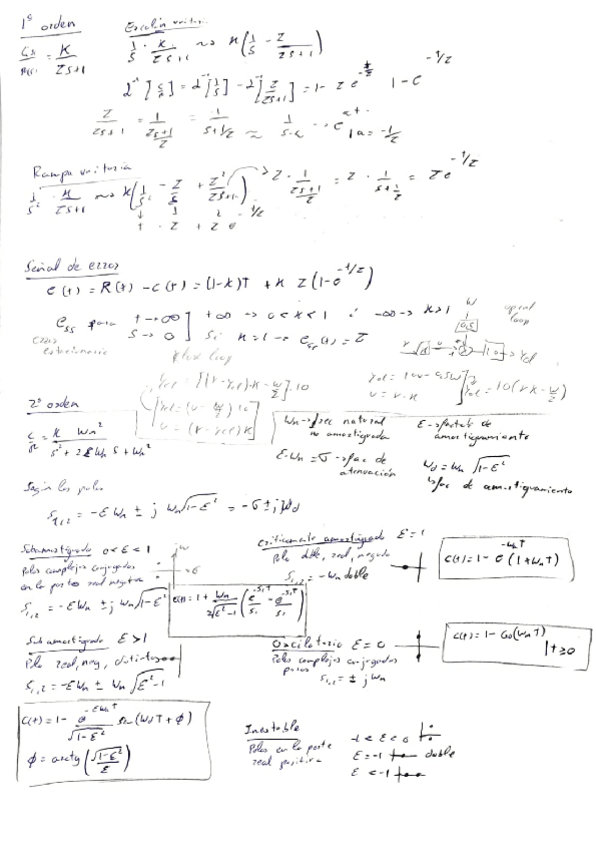 1° orden
Escalón unitario
C(s)/R(s) = K/(Zs+1)
1/s · K/(Zs+1) ~> K(1/s - Z/(Zs+1))
2⁻¹[C/R] = 2⁻¹[1/s] - 2⁻¹[Z/(Zs+1)] = 1 - Z e^(-t/Z)   1 - e^(-1/Z)
Z/(Zs+1) = 1/((Zs+1)/Z) = 1/(s+1/Z) ≈ 1/(s-a) → e^(at) | a = -1/Z
Rampa unitaria
1/s² · K/(Zs+1) ~> K(1/s² - Z/s + Z²/(Zs+1)) → Z · 1/((Zs+1)/Z) = Z · 1/(s+1/Z) = Z e^(-1/Z)
t - Z + Z e^(-1/Z)
Señal de error
e(t) = R(t) - c(t) = (1-K)T + K Z(1-e^(-1/Z))
e_ss para t→∞ s→0 ] +∞ → 0<K<1 ; -∞ → K>1
Si K=1 → e_ss(t) = Z
error estacionario
loop
2° orden
C/R = K Wn²/(s² + 2EWn s + Wn²)
Wn → frec natural no amortiguada
E → factor de amortiguamiento
E·Wn = σ → fac de atenuación
Wd = Wn √(1-E²)
↳ fac de amortiguamiento
Según los polos
S1,2 = -EWn ± j Wn√(1-E²) = -σ ± jWd
Subamortiguado 0<E<1
Polos complejos conjugados
en la parte real negativa
S1,2 = -EWn ± j Wn√(1-E²)
c(t) = 1 + Wn/(2√(E²-1)) (e^(-S1T)/S1 - e^(-S2T)/S1)
Críticamente amortiguado E = 1
Polo doble, real, negado
S1,2 = -Wn doble
c(t) = 1 - e^(-WnT) (1 + WnT)
Subamortiguado E>1
Polo real, neg, distintos
S1,2 = -EWn ± Wn √(E²-1)
Oscilatorio E = 0
Polos complejos conjugados
puros S1,2 = ± jWn
c(t) = 1 - Cos(WnT)
| t≥0
C(t) = 1 - e^(-EWnT)/√(1-E²) sen(WdT + ϕ)
ϕ = arctg(√(1-E²)/E)
Inestable
Polos en la parte
real positiva
-1 < E < 0
E = -1 doble
E < -1